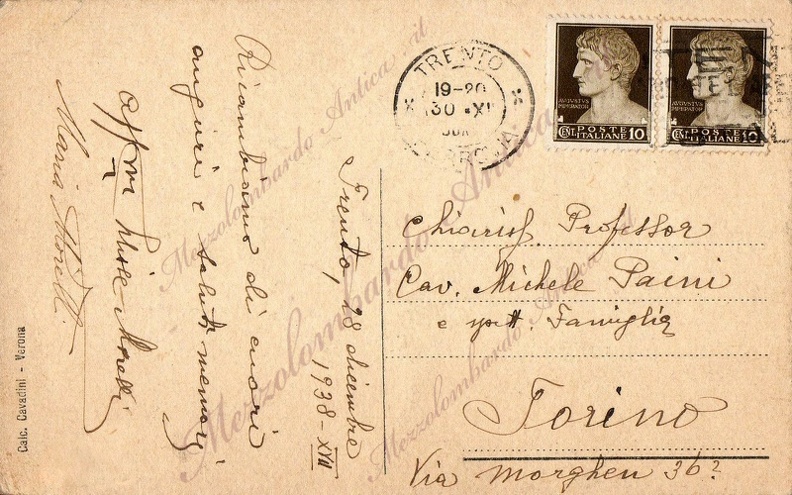 Trento, 28 dicembre
1938-XVII
Ricambiamo di cuore
auguri e saluti memori
Maria Morelli
Chiariss. Professor
Cav. Michele Paini
e Famiglia
Torino
Via Morghen 36?
TRENTO
19-20
30 XI
AVGVSTVS
IMPERATOR
CENT. POSTE ITALIANE 10
AVGVSTVS
IMPERATOR
CENT. POSTE ITALIANE 10
Calc. Cavadini - Verona
Mezzolombardo Antica .it
Mezzolombardo Antica
Mezzolombardo Antica .it